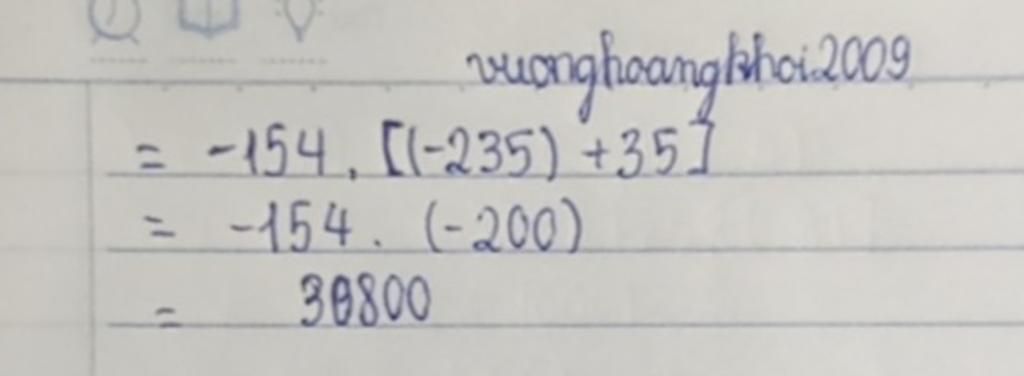 vuonghoangkhoi2009
= -154. [(-235) +35]
= -154. (-200)
= 30800